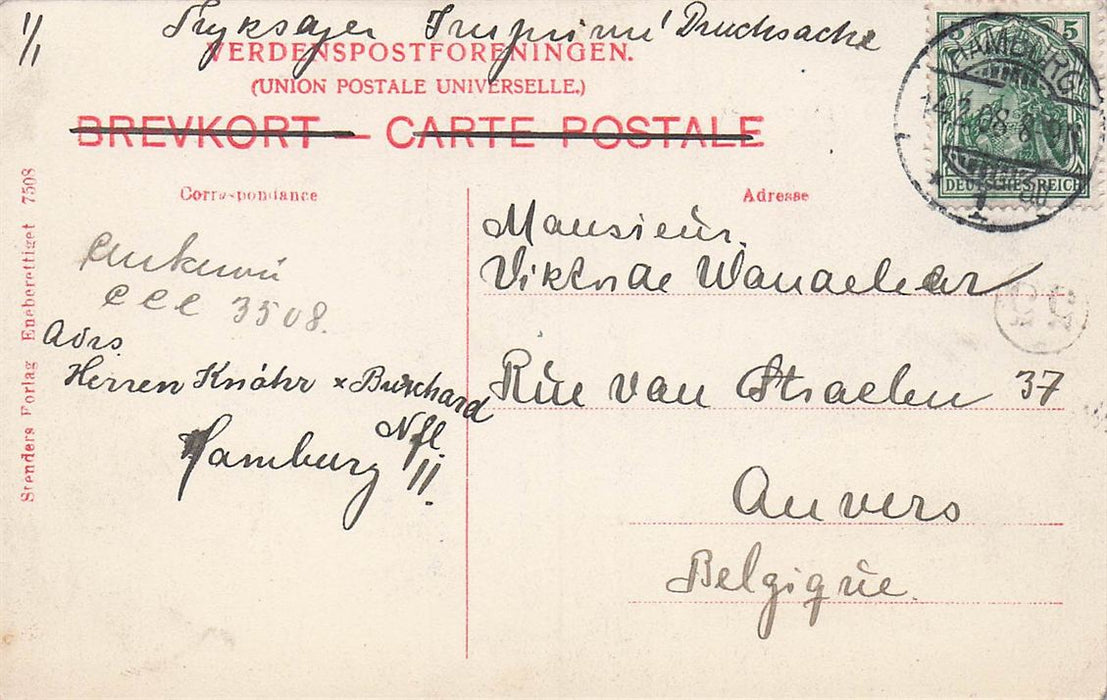 1/1
Tryksager Imprimé Drucksache
VERDENSPOSTFORENINGEN.
(UNION POSTALE UNIVERSELLE.)
BREVKORT – CARTE POSTALE
5 5
HAMBURG
14.2.08. 8-9N
* 1
DEUTSCHES REICH
Correspondance
Adresse
CCC 3508.
Adrs.
Herren Knöhr x Burchard
Nfl.
Hamburg 11.
Monsieur.
Viktor de
Rue van Straelen 37
Anvers
Belgique.
Stenders Forlag Eneberettiget 7508